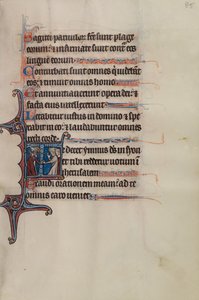 Sagitte parvulor. fce sunt plage
eorum: & infirmate sunt cont eos
lingue eorum.
Conturbati sunt omnes qui videbant
eos: & timuit omnis homo.
Et annuntiaverunt opera dei: &
facta eius intellexerunt.
Letabitur iustus in domino & spe
rabit in eo: & laudabuntur omnes
recti corde.
Te decet ymnus deus in syon
& tibi reddetur votum in
iherusalem.
Exaudi orationem meam: ad te
omnis caro veniet.